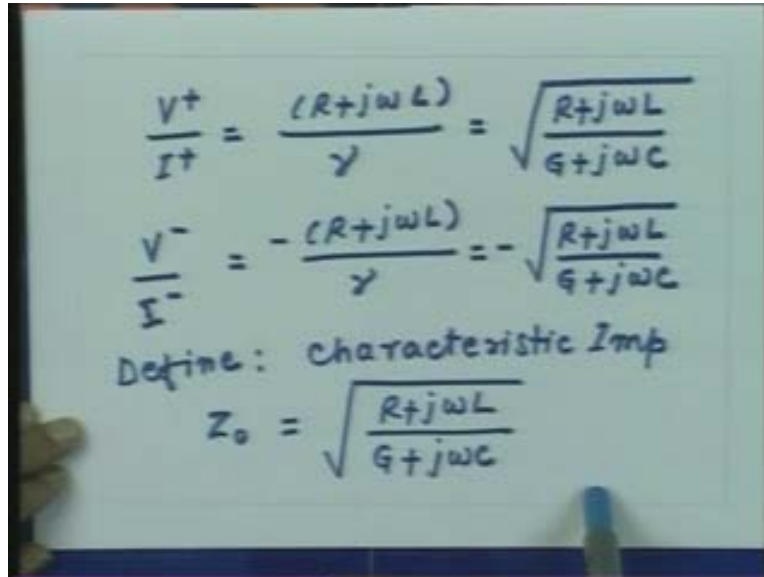 V⁺/I⁺ = (R+jωL)/γ = √((R+jωL)/(G+jωC))
V⁻/I⁻ = -(R+jωL)/γ = -√((R+jωL)/(G+jωC))
Define: Characteristic Imp
Z₀ = √((R+jωL)/(G+jωC))